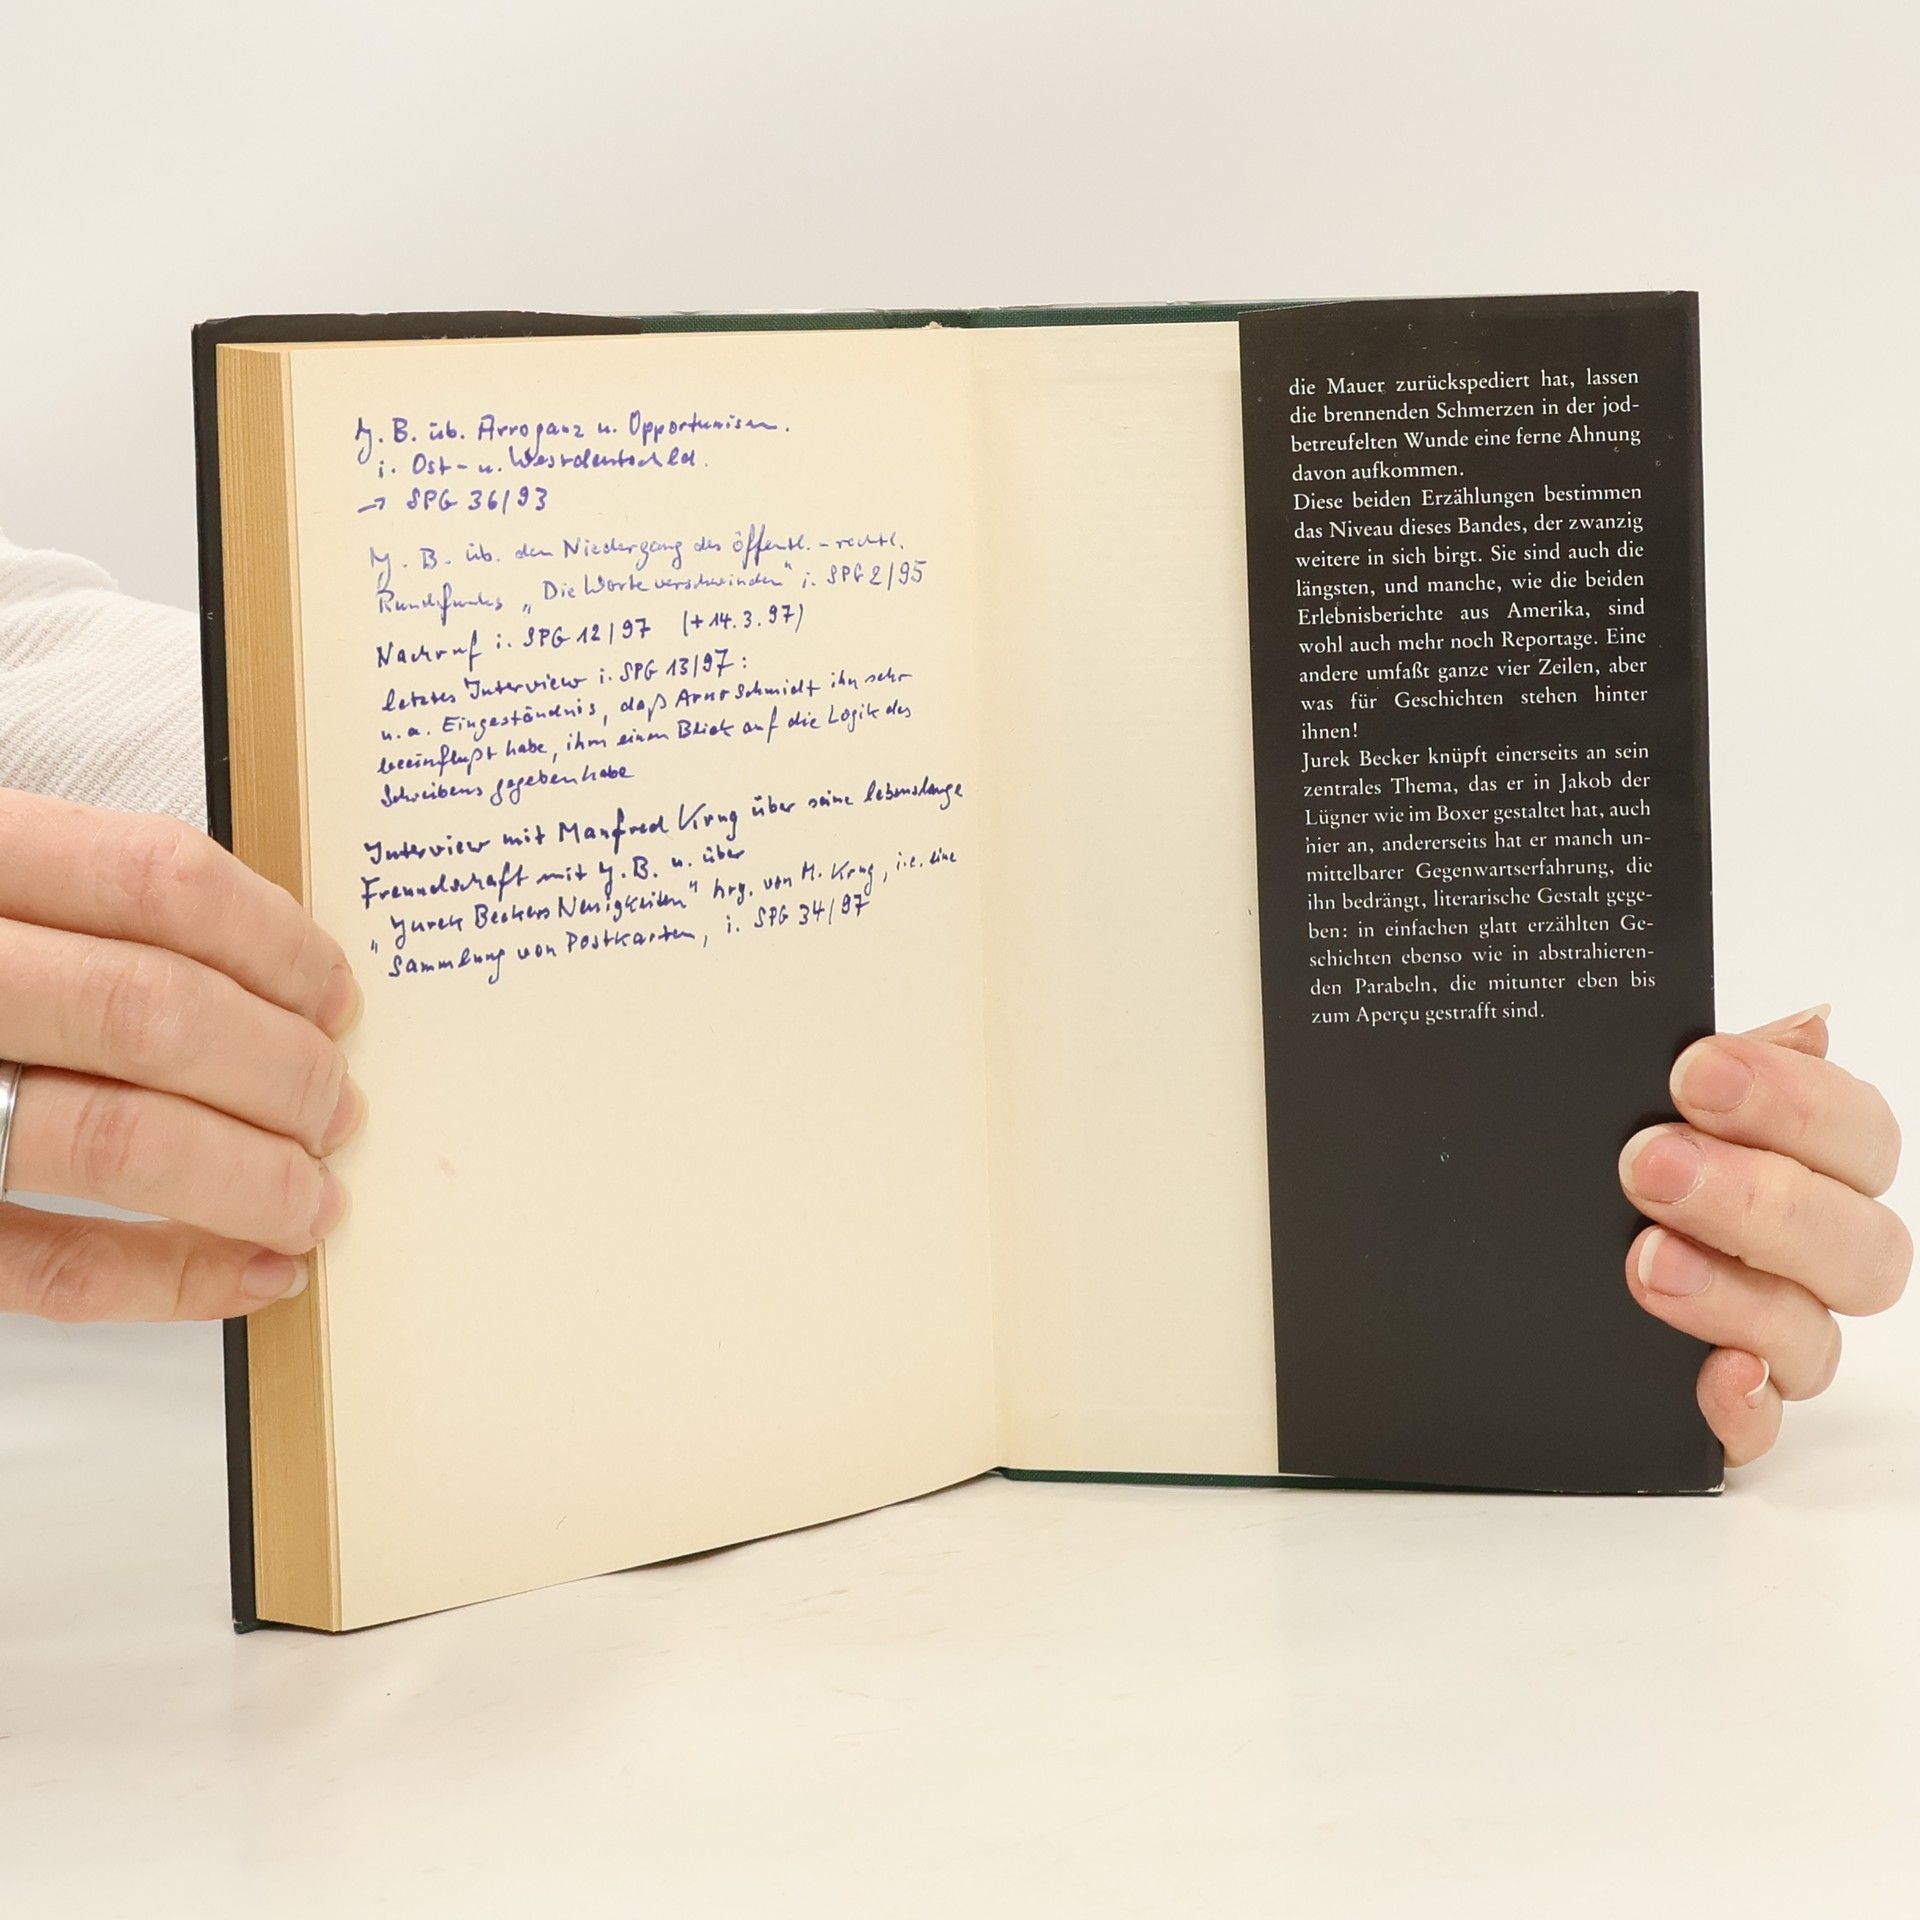 J. B. üb. Arroganz u. Opportunism.
i. Ost- u. Westdeutschld.
→ SPG 36/93
J. B. üb. den Niedergang des öffentl.-rechtl.
Rundfunks „Die Worte verschwinden" i. SPG 2/95
Nachruf i. SPG 12/97 (+ 14. 3. 97)
letztes Interview i. SPG 13/97:
u. a. Eingeständnis, daß Arno Schmidt ihn sehr
beeinflußt habe, ihm einen Blick auf die Logik des
Schreibens gegeben habe
Interview mit Manfred Krug über seine lebenslange
Freundschaft mit J. B. u. über
„Jurek Beckers Neuigkeiten" hrg. von M. Krug, i.e. eine
Sammlung von Postkarten, i. SPG 34/97
die Mauer zurückspediert hat, lassen
die brennenden Schmerzen in der jod-
betreufelten Wunde eine ferne Ahnung
davon aufkommen.
Diese beiden Erzählungen bestimmen
das Niveau dieses Bandes, der zwanzig
weitere in sich birgt. Sie sind auch die
längsten, und manche, wie die beiden
Erlebnisberichte aus Amerika, sind
wohl auch mehr noch Reportage. Eine
andere umfaßt ganze vier Zeilen, aber
was für Geschichten stehen hinter
ihnen!
Jurek Becker knüpft einerseits an sein
zentrales Thema, das er in Jakob der
Lügner wie im Boxer gestaltet hat, auch
hier an, andererseits hat er manch un-
mittelbarer Gegenwartserfahrung, die
ihn bedrängt, literarische Gestalt gege-
ben: in einfachen glatt erzählten Ge-
schichten ebenso wie in abstrahieren-
den Parabeln, die mitunter eben bis
zum Aperçu gestrafft sind.